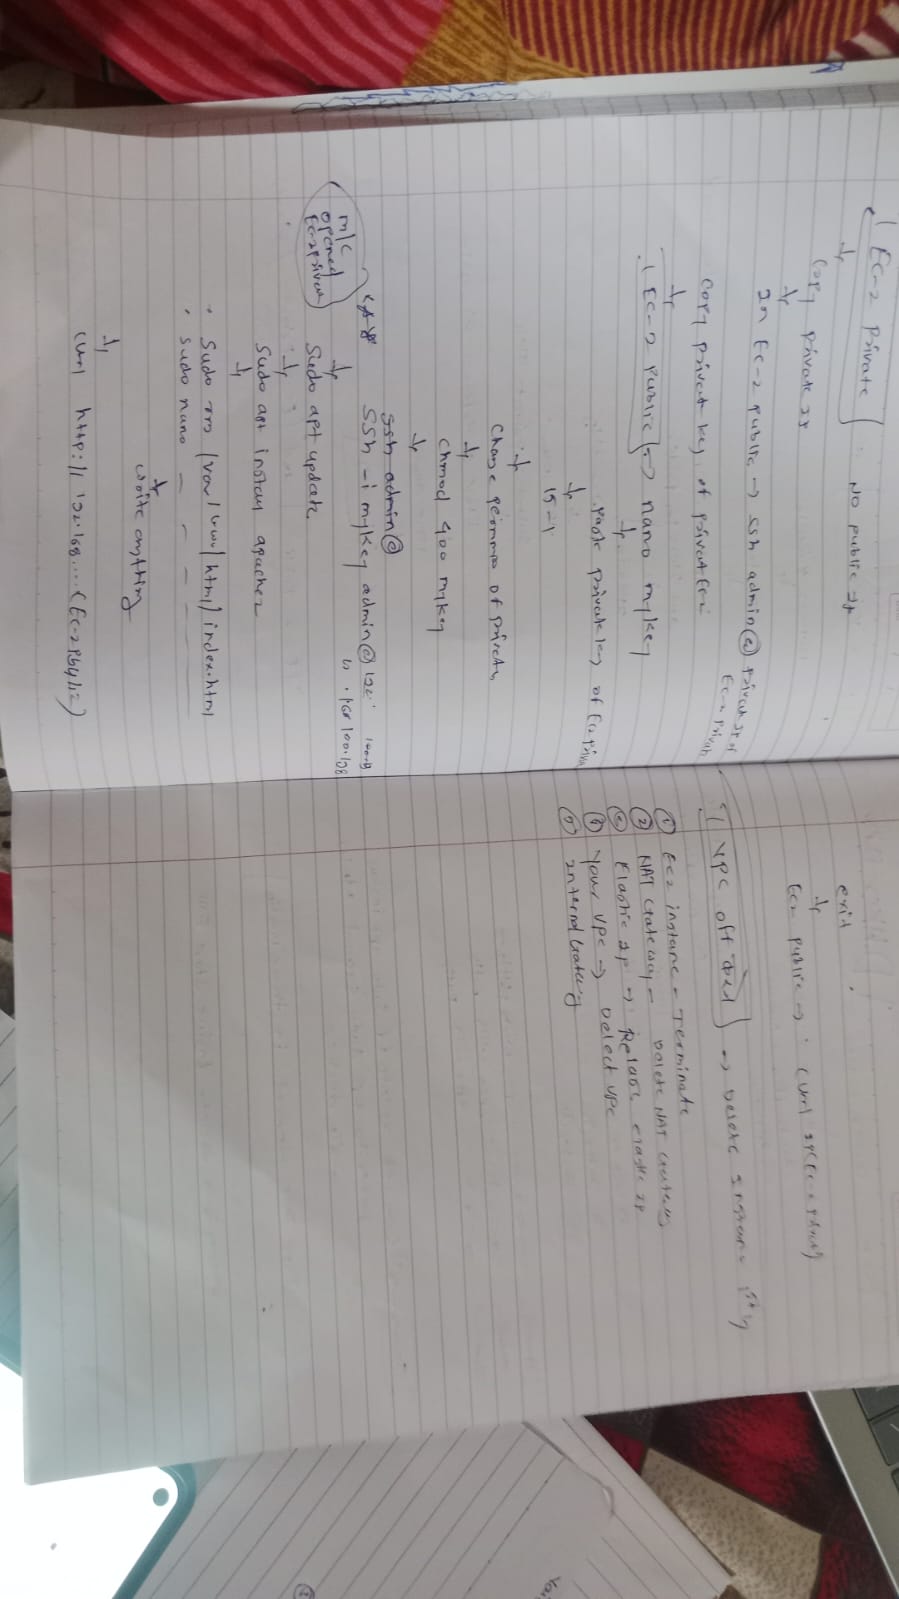 Ec-2 Private No public Ip
Copy private Ip
In Ec-2 public → ssh admin@ private Ip of
Ec-2 private
Copy private key of private Ec2
Ec-2 public → nano mykey
paste private key of Ec2
ls -l
Change of private
chmod 400 mykey
ssh admin@
ssh -i mykey admin@
m/c
opened
Ec-2 private
Sudo apt update
Sudo apt install apache2
Sudo rm /var/www/html/index.html
sudo nano
write anything
curl http://192.168....(Ec-2 
exit
Ec2 public → curl Ip(
VPC off → Delete
① Ec2 instance - Terminate
② NAT Gateway - Delete NAT Gateway
③ Elastic Ip → Release elastic Ip
④ Your VPC → Delect VPC
⑤